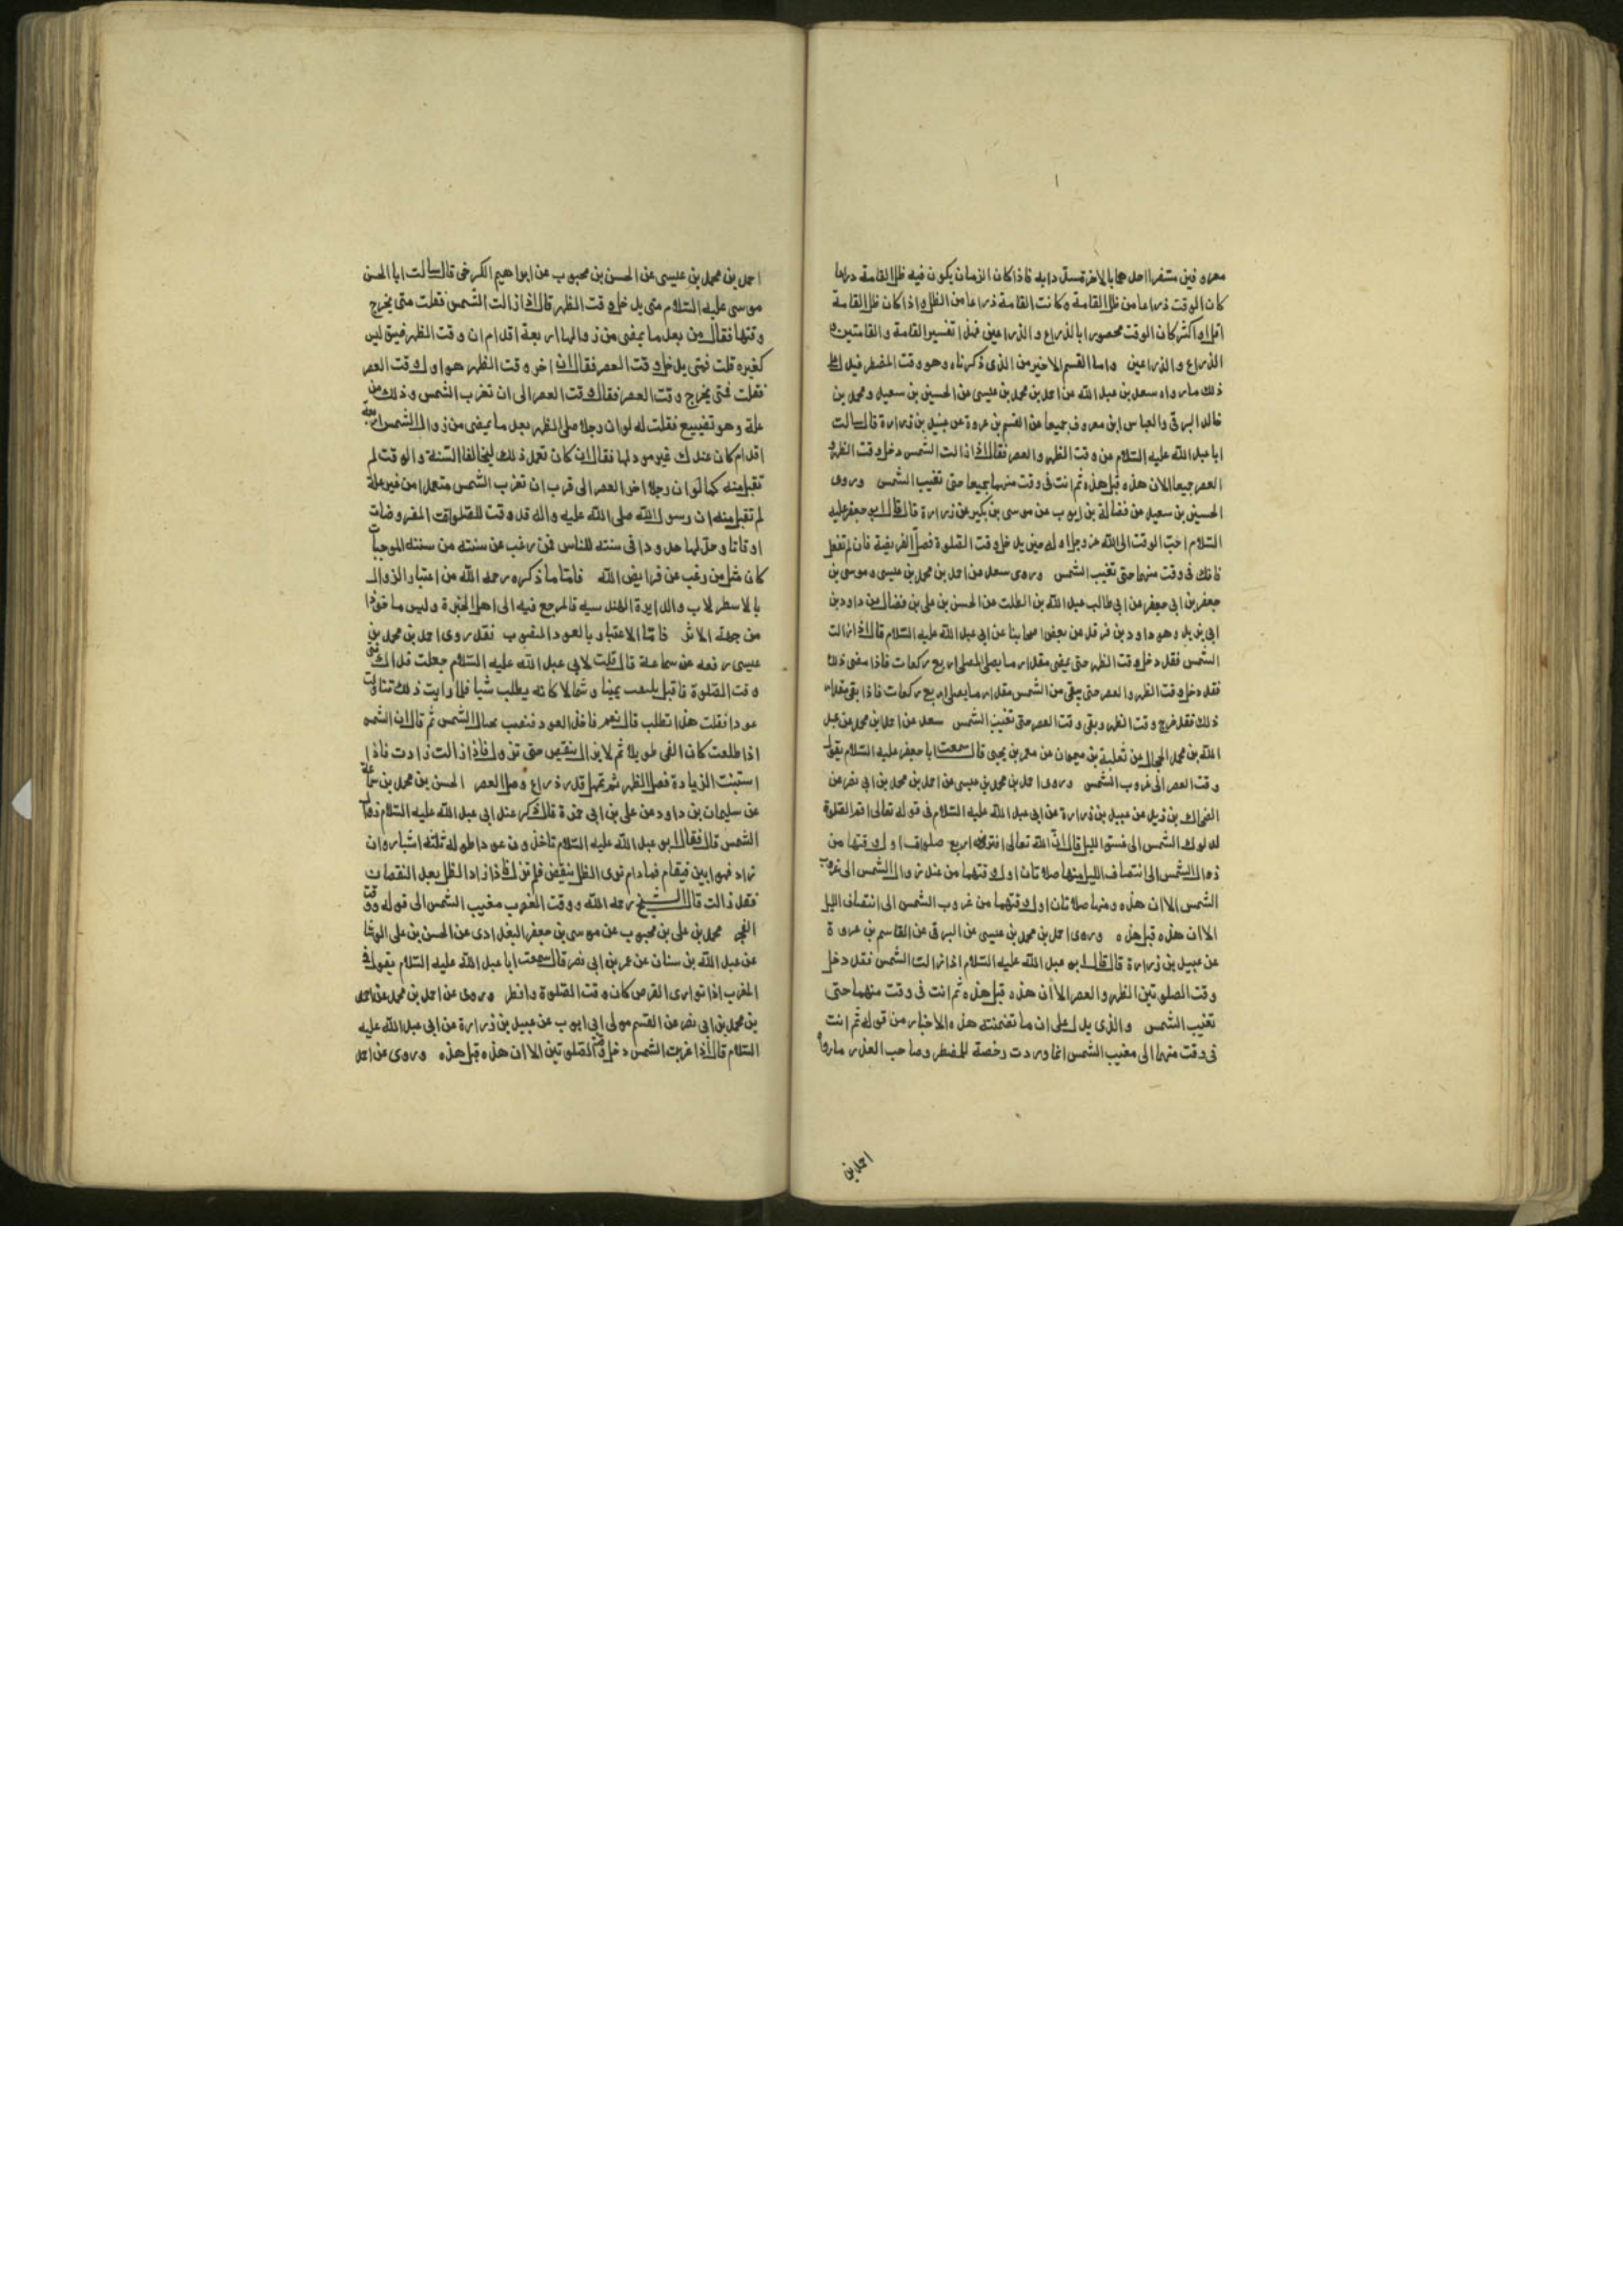 معروفين مفسرا احدهما بالاخر مسددا به فاذا كان الزمان يكون فيه ظل القامة ذراعا
كان الوقت ذراعا من ظل القامة وكانت القامة ذراعا من الظل واذا كان ظل القامة
اقل او اكثر كان الوقت محصورا بالذراع والذراعين فهذا تفسير القامة والقامتين و
الذراع والذراعين واما القسم الاخير من الذى ذكرناه وهو وقت المضطر فيدل على
ذلك ما رواه سعد بن عبد الله عن احمد بن محمد بن عيسى عن الحسين بن سعيد ومحمد بن
خالد البرقى والعباس ابن معروف جميعا عن القسم بن عروة عن عبيد بن زرارة قال سالت
ابا عبد الله عليه السلام عن وقت الظهر والعصر فقال اذا زالت الشمس دخل وقت الظهر و
العصر جميعا الا ان هذه قبل هذه ثم انت فى وقت منهما جميعا حتى تغيب الشمس وروى
الحسين بن سعيد عن فضالة بن ايوب عن موسى بن بكير عن زرارة قال قال ابو جعفر عليه
السلام احب الوقت الى الله عز وجل اوله حين يدخل وقت الصلوة فصل الفريضة فان لم تفعل
فانك فى وقت منهما حتى تغيب الشمس وروى سعد عن احمد بن محمد بن عيسى وموسى بن
جعفر بن ابى جعفر عن ابى طالب عبد الله بن الصلت عن الحسن بن على بن فضال عن داود بن
ابى يزيد وهو داود بن فرقد عن بعض اصحابنا عن ابى عبد الله عليه السلام قال اذا زالت
الشمس فقد دخل وقت الظهر حتى يمضى مقدار ما يصلى المصلى اربع ركعات فاذا مضى ذلك
فقد دخل وقت الظهر والعصر حتى يبقى من الشمس مقدار ما يصلى اربع ركعات فاذا بقى مقدار
ذلك فقد خرج وقت الظهر وبقى وقت العصر حتى تغيب الشمس سعد عن احمد بن محمد عن عبد
الله بن محمد الحجال عن ثعلبة بن ميمون عن معمر بن يحيى قال سمعت ابا جعفر عليه السلام يقول
وقت العصر الى غروب الشمس وروى احمد بن محمد بن عيسى عن احمد بن محمد بن ابى نصر عن
الضحاك بن زيد عن عبيد بن زرارة عن ابى عبد الله عليه السلام فى قوله تعالى اقم الصلوة
لدلوك الشمس الى غسق الليل قال ان الله تعالى افترض اربع صلوات اول وقتها من
زوال الشمس الى انتصاف الليل منها صلاتان اول وقتهما من عند زوال الشمس الى غروب
الشمس الا ان هذه ومنها صلاتان اول وقتهما من غروب الشمس الى انتصاف الليل
الا ان هذه قبل هذه وروى احمد بن محمد بن عيسى عن البرقى عن القاسم بن عروة
عن عبيد بن زرارة قال قال ابو عبد الله عليه السلام اذا زالت الشمس فقد دخل
وقت الصلوتين الظهر والعصر الا ان هذه قبل هذه ثم انت فى وقت منهما حتى
تغيب الشمس والذى يدل على ان ما تضمنته هذه الاخبار من قوله ثم انت
فى وقت منهما الى مغيب الشمس انما وردت رخصة للمضطر وصاحب العذر ما رواه
احمد بن
احمد بن محمد بن عيسى عن الحسن بن محبوب عن ابراهيم الكرخى قال سالت ابا الحسن
موسى عليه السلام متى يدخل وقت الظهر قال اذا زالت الشمس فقلت متى يخرج
وقتها فقال من بعد ما يمضى من زوالها اربعة اقدام ان وقت الظهر ضيق ليس
كغيره قلت فمتى يدخل وقت العصر فقال ان اخر وقت الظهر هو اول وقت العصر
فقلت فمتى يخرج وقت العصر فقال وقت العصر الى ان تغرب الشمس وذلك من
علة وهو تضييع فقلت له لو ان رجلا صلى الظهر بعد ما يمضى من زوال الشمس اربعة
اقدام كان عندك غير مود لها فقال ان كان تعمد ذلك ليخالف السنة والوقت لم
تقبل منه كما لو ان رجلا اخر العصر الى قرب ان تغرب الشمس متعمدا من غير علة
لم تقبل منه ان رسول الله صلى الله عليه واله قد وقت للصلوات المفروضات
اوقاتا وحد لها حدودا فى سنته للناس فمن رغب عن سنته من سننه الموجبات
كان مثل من رغب عن فرايض الله فاما ما ذكره رحمه الله من اعتبار الزوال
بالاسطرلاب والدايرة الهندسيه فالمرجع فيه الى اهل الخبرة وليس ماخوذا
من جهة الاثر فاما الاعتبار بالعود المنصوب فقد روى احمد بن محمد بن
عيسى رفعه عن سماعة قال قلت لابى عبد الله عليه السلام جعلت فداك متى
وقت الصلوة فاقبل يلتفت يمينا وشمالا كانه يطلب شيا فلما رايت ذلك تناولت
عودا فقلت هذا تطلب قال نعم فاخذ العود فنصب بحيال الشمس ثم قال ان الشمس
اذا طلعت كان الفى طويلا ثم لا يزال ينقص حتى تزول فاذا زالت زادت فاذا
استبنت الزيادة فصل الظهر ثم تمهل قدر ذراع وصل العصر الحسن بن محمد بن سماعة
عن سليمان بن داود عن على بن ابى حمزة قال ذكر عند ابى عبد الله عليه السلام زوال
الشمس قال فقال ابو عبد الله عليه السلام تاخذون عودا طوله ثلثة اشبار وان
زاد فهو ابين فيقام فما دام ترى الظل ينقص فلم تزل فاذا زاد الظل بعد النقصان
فقد زالت قال الشيخ رحمه الله ووقت المغرب مغيب الشمس الى قوله ووقت
الفجر محمد بن على بن محبوب عن موسى بن جعفر البغدادى عن الحسن بن على الوشا
عن عبد الله بن سنان عن عمر بن ابى نصر قال سمعت ابا عبد الله عليه السلام يقول فى
المغرب اذا توارى القرص كان وقت الصلوة وافطر وروى عن احمد بن محمد عن احمد
بن محمد بن ابى نصر عن القسم مولى ابى ايوب عن عبيد بن زرارة عن ابى عبد الله عليه
السلام قال اذا غربت الشمس دخل وقت الصلوتين الا ان هذه قبل هذه وروى عن احمد